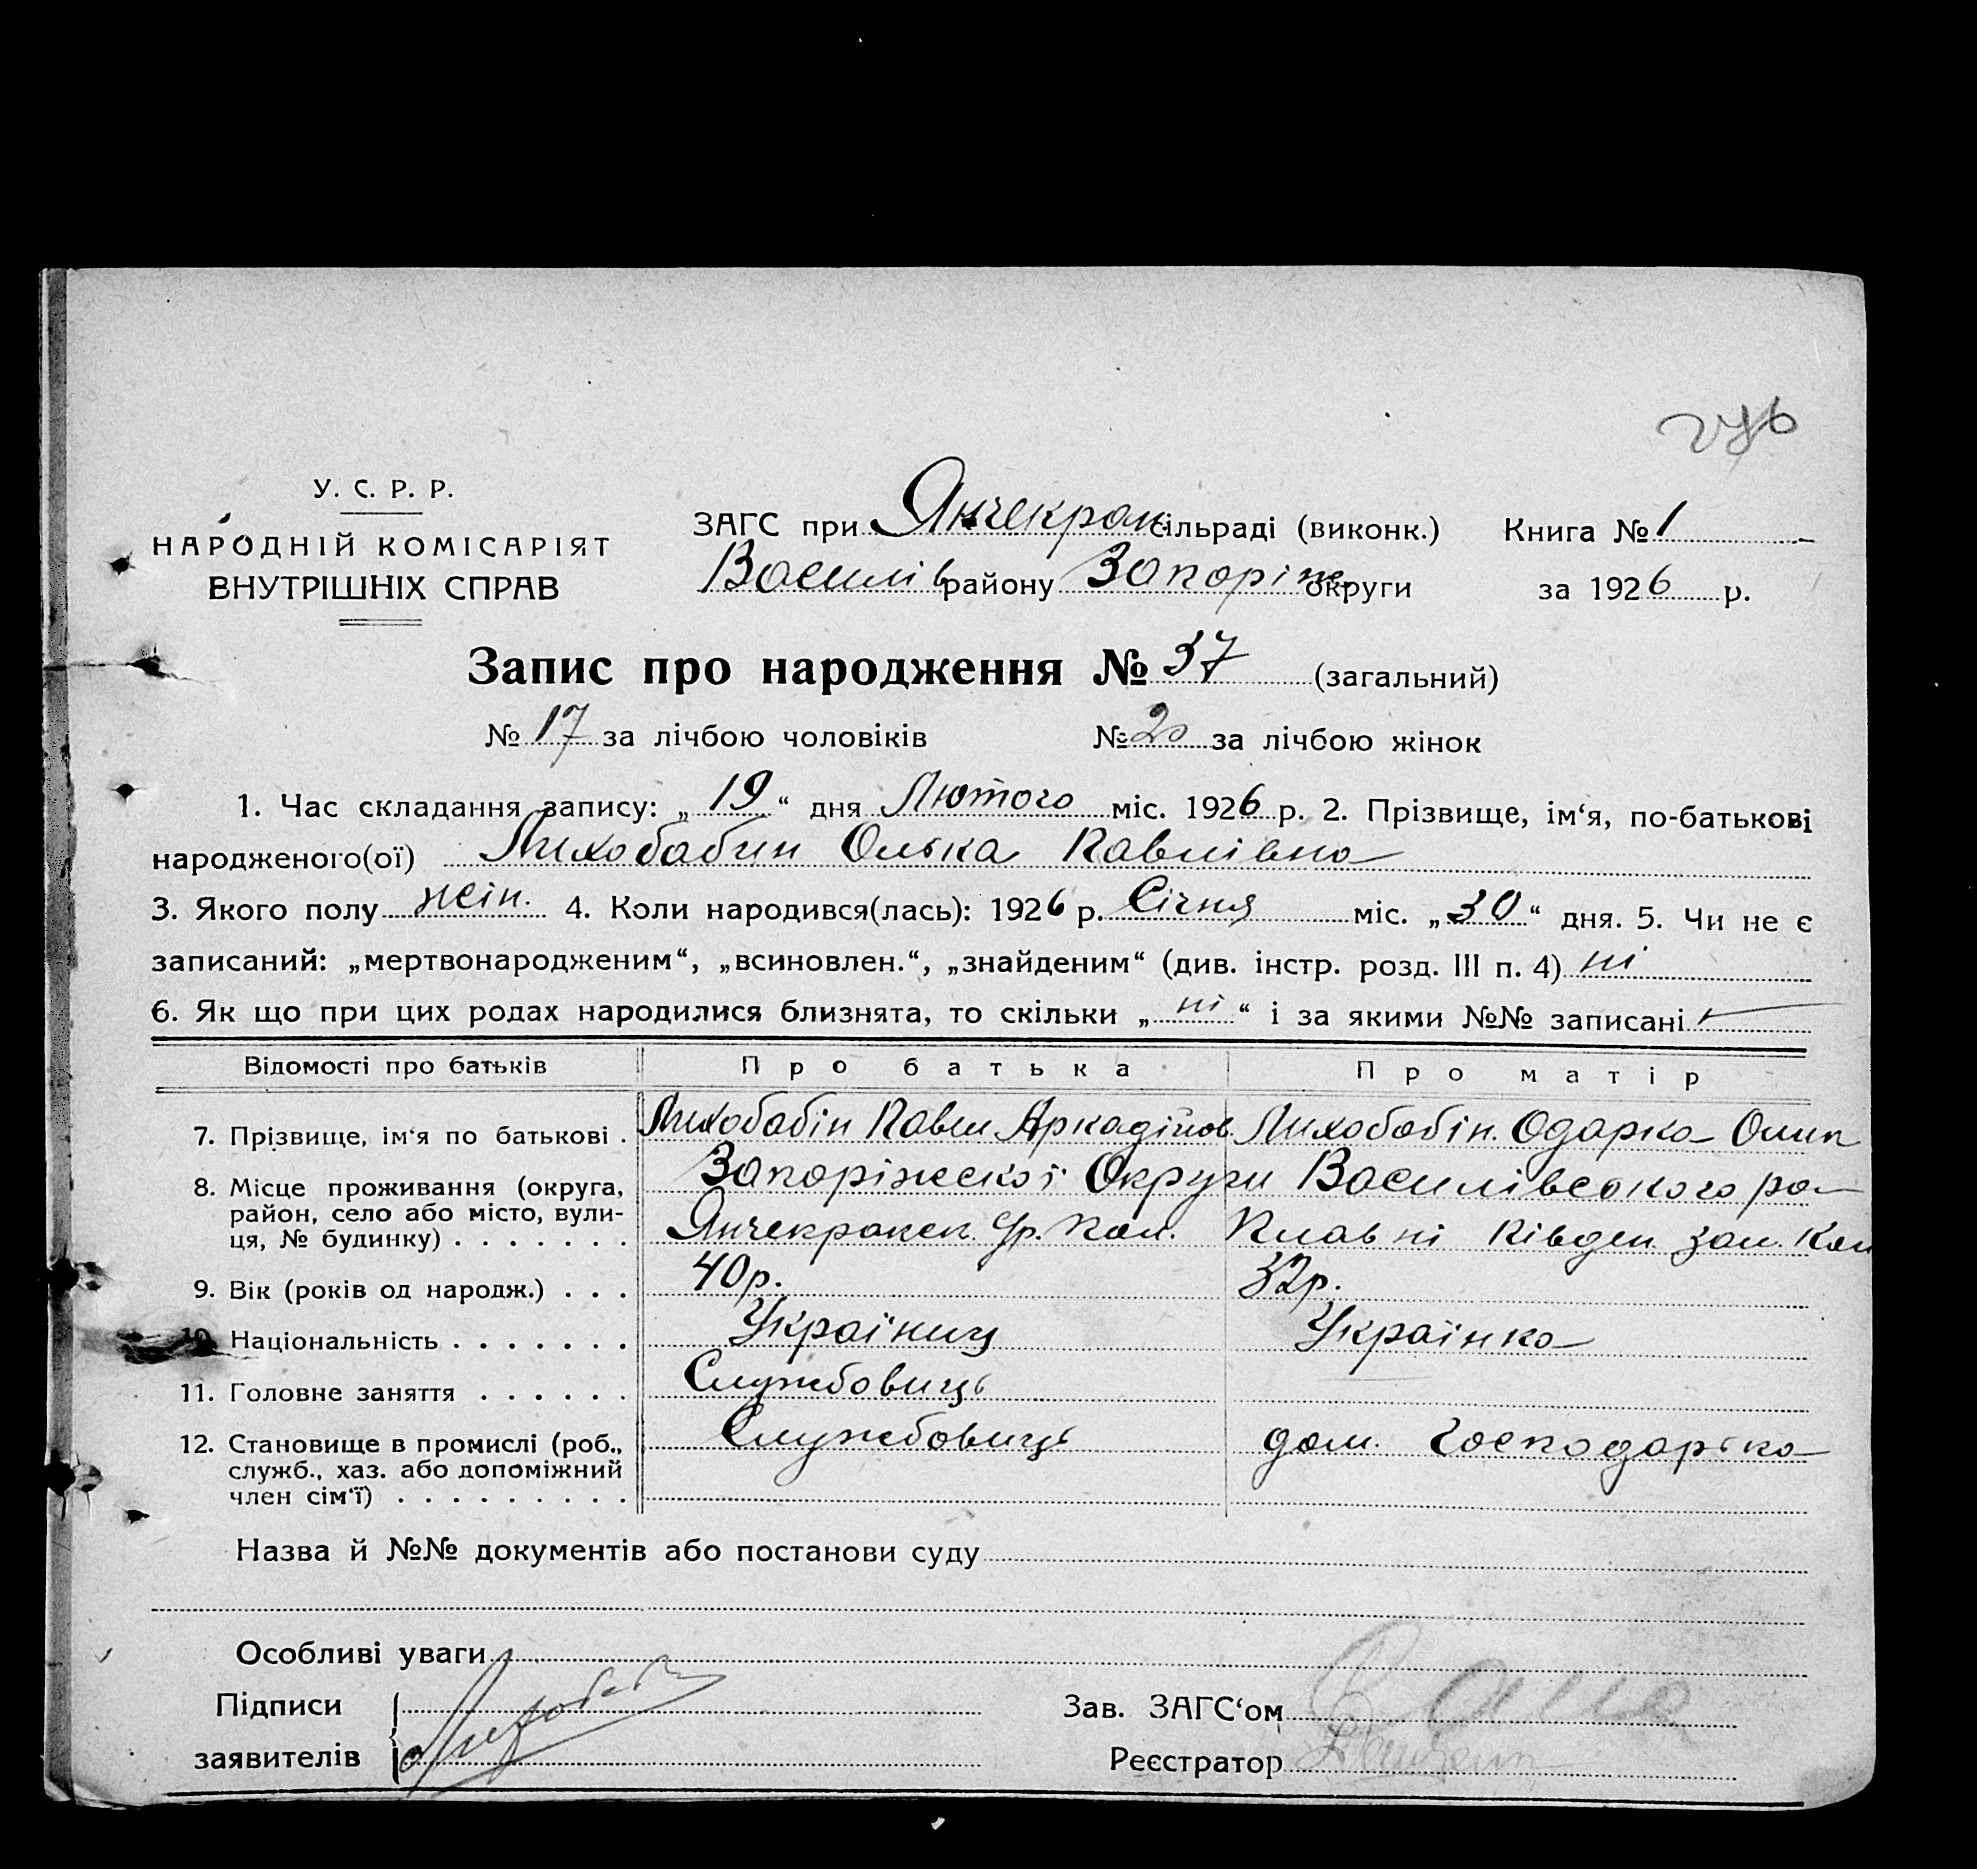 276
У. С. Р. Р.
НАРОДНІЙ КОМІСАРІЯТ
ВНУТРІШНІХ СПРАВ
ЗАГС при Янчекрак сільраді (виконк.) Книга № 1
Василів району Запоріж округи за 1926 р.
Запис про народження № 37 (загальний)
№ 17 за лічбою чоловіків № 20 за лічбою жінок
1. Час складання запису: „19“ дня Лютого міс. 1926 р. 2. Прізвище, ім‘я, по-батькові
народженого(ої) Лихобабин Олька Павлівна
3. Якого полу жін. 4. Коли народився(лась): 1926 р. Січня міс. „30“ дня. 5. Чи не є
записаний: „мертвонародженим“, „всиновлен.“, „знайденим“ (див. інстр. розд. III п. 4) ні
6. Як що при цих родах народилися близнята, то скільки „ні“ і за якими №№ записані
Відомості про батьків Про батька Про матір
7. Прізвище, ім‘я по батькові . Лихобабін Павел Аркадійов. Лихобабін. Одарка Олип
8. Місце проживання (округа, Запоріжської Округи Василівського ра
район, село або місто, вули-
ця, № будинку) . . . . . . . Янчекракск. Гр. Кол. Плавні Півден зал. Кол
9. Вік (років од народж.) . . . 40р. 32р.
10. Національність . . . . . . . Українць Українка
11. Головне заняття . . . . . . Службовиць
12. Становище в промислі (роб., Службовиць дом. господарька
служб., хаз. або допоміжний
член сім‘ї) . . . . . . . . .
Назва й №№ документів або постанови суду
Особливі уваги
Підписи
заявителів
Зав. ЗАГС‘ом
Реєстратор